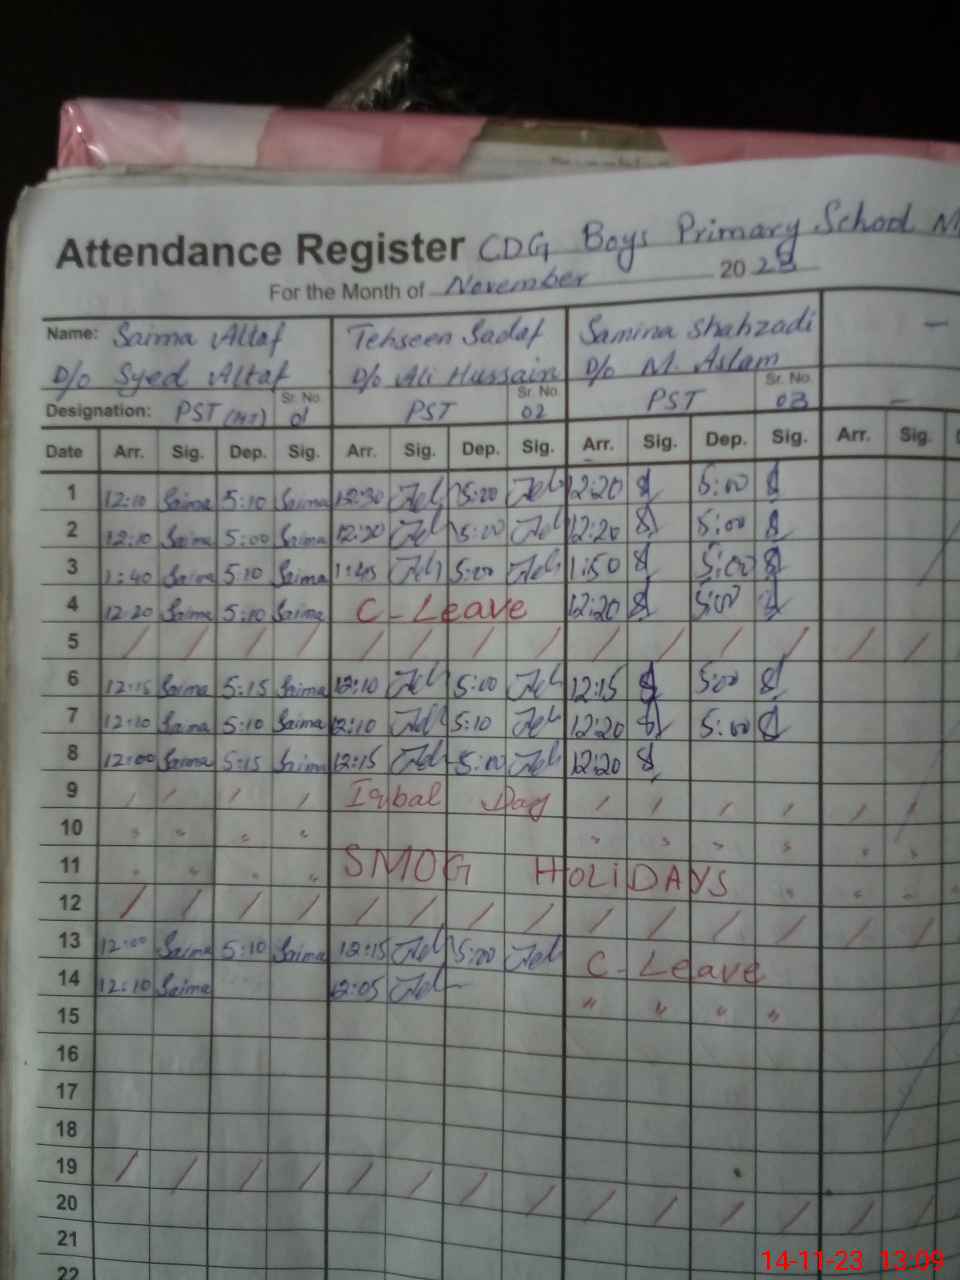 Attendance Register CDG Boys Primary School M
For the Month of November 2023
Name: Saima Altaf Tehseen Sadaf Samina Shahzadi –
D/o Syed Altaf D/o Ali Hussain D/o M. Aslam
Designation: PST (HT) Sr. No. 01 PST Sr. No. 02 PST Sr. No. 03 –
Date Arr. Sig. Dep. Sig. Arr. Sig. Dep. Sig. Arr. Sig. Dep. Sig. Arr. Sig.
1 12:10 Saima 5:10 Saima 12:30 5:00 12:20 5:00
2 12:10 Saima 5:00 Saima 12:20 5:00 12:20 5:00
3 1:40 Saima 5:10 Saima 1:45 5:00 1:50 5:00
4 12:20 Saima 5:10 Saima C-Leave 12:20 5:00
5 / / / / / / / / / / / / / /
6 12:15 Saima 5:15 Saima 12:10 5:00 12:15 5:00
7 12:10 Saima 5:10 Saima 12:10 5:10 12:20 5:00
8 12:00 Saima 5:15 Saima 12:15 5:00 12:20
9 / / / / Iqbal Day / / / / / /
10 " " " " " " " " " "
11 " " " " SMOG HOLiDAYS " " "
12 / / / / / / / / / / / / / /
13 12:00 Saima 5:10 Saima 12:15 5:00 C-Leave
14 12:10 Saima 12:05 " " " "
15
16
17
18
19 / / / / / / / / / / / / / /
20
21
22
14-11-23 13:09